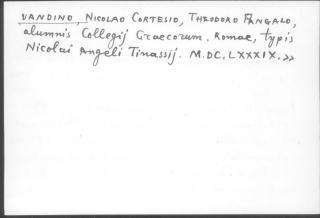 VANDINO, NICOLAO CORTESIO, THEODORO FANGALO,
alumnis Collegij Graecorum. Romae, typis
Nicolai Angeli Tinassij. M.DC.LXXXIX.»